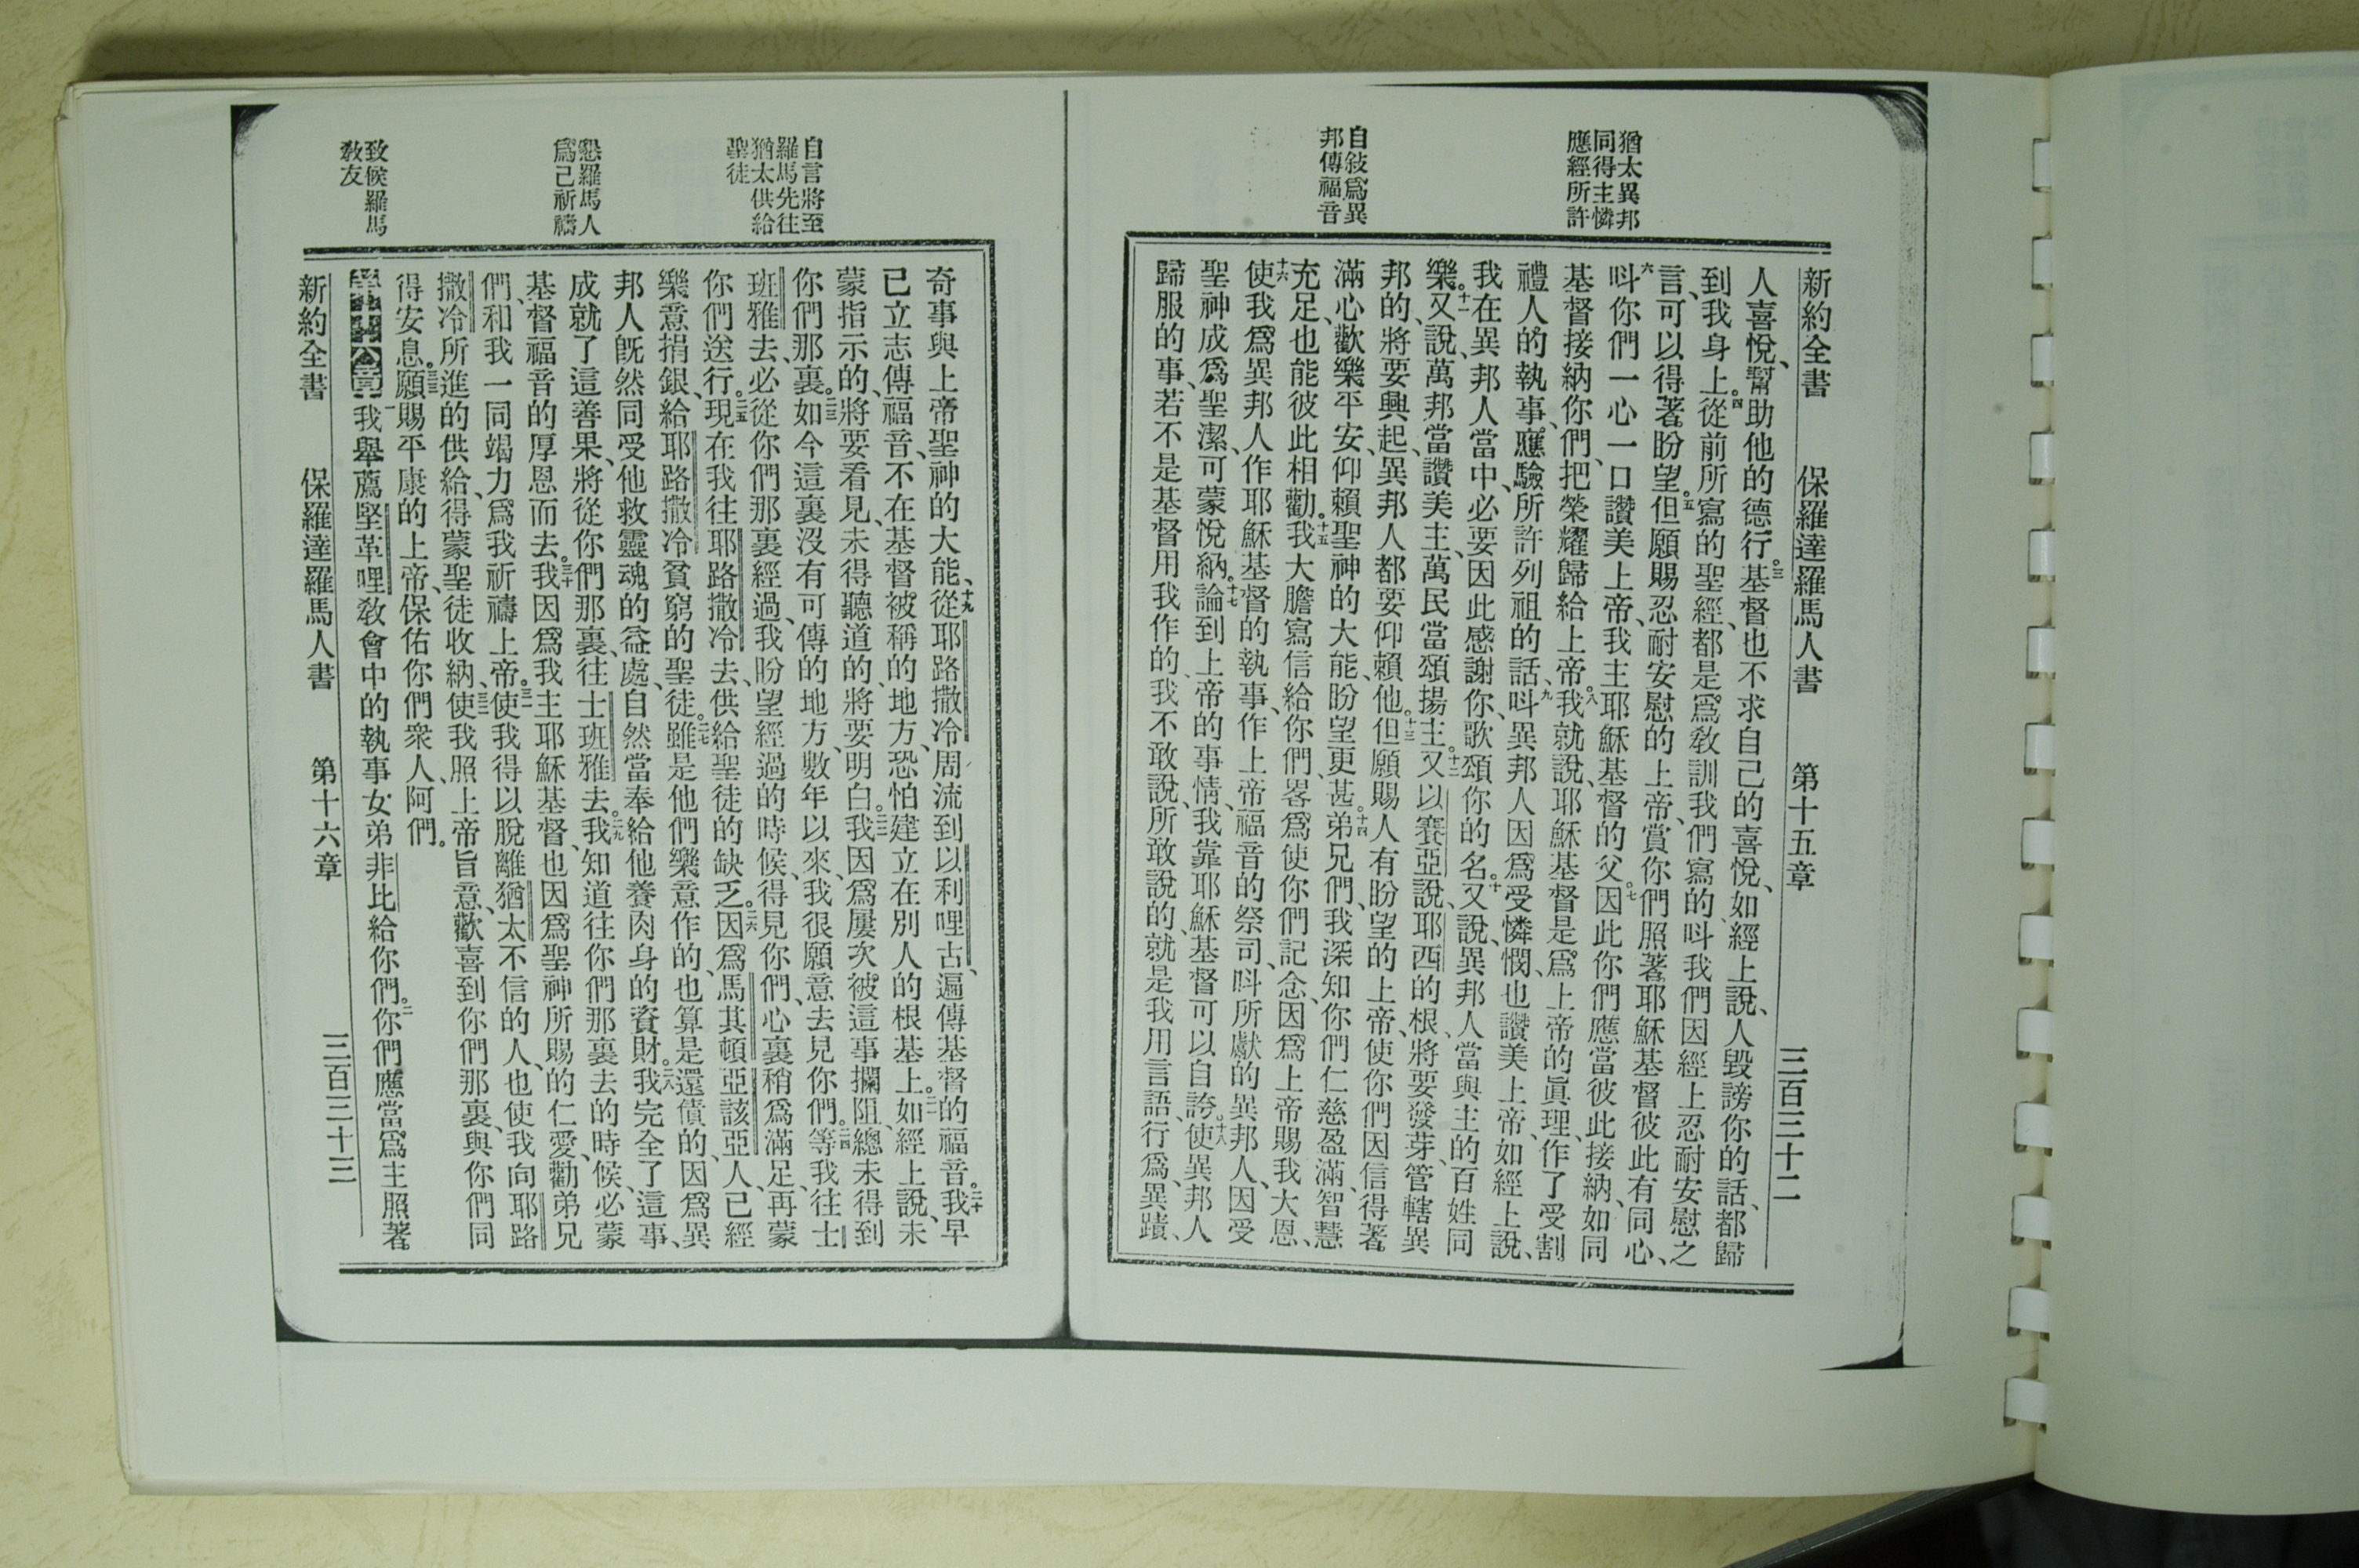 新約全書 保羅達羅馬人書 第十五章 三百三十二
猶太異邦
同得主憐
應經所許
自敍爲異
邦傳福音
人喜悅、幫助他的德行。三基督也不求自己的喜悅、如經上說、人毀謗你的話、都歸
到我身上。四從前所寫的聖經、都是爲敎訓我們寫的呌我們因經上忍耐安慰之
言、可以得著盼望。五但願賜忍耐安慰的上帝、賞你們照著耶穌基督彼此有同心、
六呌你們一心一口讚美上帝、我主耶穌基督的父。七因此你們應當彼此接納、如同
基督接納你們、把榮耀歸給上帝。八我就說、耶穌基督是爲上帝的眞理、作了受割
禮人的執事、應驗所許列祖的話、九呌異邦人因爲受憐憫、也讚美上帝、如經上說、
我在異邦人當中、必要因此感謝你、歌頌你的名。十又說、異邦人當與主的百姓同
樂。十一又說、萬邦當讚美主、萬民當頌揚主。十二又以賽亞說、耶西的根、將要發芽、管轄異
邦的、將要興起、異邦人都要仰賴他。十三但願賜人有盼望的上帝、使你們因信得著
滿心歡樂平安、仰賴聖神的大能、盼望更甚。十四弟兄們、我深知你們仁慈盈滿、智慧
充足、也能彼此相勸。十五我大膽寫信給你們、畧爲使你們記念、因爲上帝賜我大恩、
十六使我爲異邦人、作耶穌基督的執事、作上帝福音的祭司、呌所獻的異邦人、因受
聖神成爲聖潔、可蒙悅納。十七論到上帝的事情、我靠耶穌基督可以自誇。十八使異邦人
歸服的事、若不是基督用我作的、我不敢說、所敢說的、就是我用言語、行爲、異蹟、
自言將至
羅馬先往
猶太供給
聖徒
懇羅馬人
爲己祈禱
致候羅馬
敎友
奇事與上帝聖神的大能、十九從耶路撒冷周流到以利哩古、遍傳基督的福音。二十我早
已立志傳福音、不在基督被稱的地方、恐怕建立在別人的根基上。二一如經上說、未
蒙指示的、將要看見、未得聽道的、將要明白。二二我因爲屢次被這事攔阻、總未得到
你們那裏。二三如今這裏沒有可傳的地方、數年以來、我很願意去見你們。二四等我往士
班雅去、必從你們那裏經過、我盼望經過的時候、得見你們、心裏稍爲滿足、再蒙
你們送行。二五現在我往耶路撒冷去、供給聖徒的缺乏。二六因爲馬其頓亞該亞人、已經
樂意捐銀、給耶路撒冷貧窮的聖徒。二七雖是他們樂意作的、也算是還債的、因爲異
邦人旣然同受他救靈魂的益處、自然當奉給他養肉身的資財。二八我完全了這事、
成就了這善果、將從你們那裏、往士班雅去。二九我知道往你們那裏去的時候、必蒙
基督福音的厚恩而去。三十我因爲我主耶穌基督、也因爲聖神所賜的仁愛、勸弟兄
們、和我一同竭力爲我祈禱上帝。三一使我得以脫離猶太不信的人、也使我向耶路
撒冷所進的供給、得蒙聖徒收納、三二使我照上帝旨意、歡喜到你們那裏、與你們同
得安息。三三願賜平康的上帝、保佑你們衆人、阿們。
第十六章 一我舉薦堅革哩敎會中的執事女弟非比給你們。二你們應當爲主照著
新約全書 保羅達羅馬人書 第十六章 三百三十三